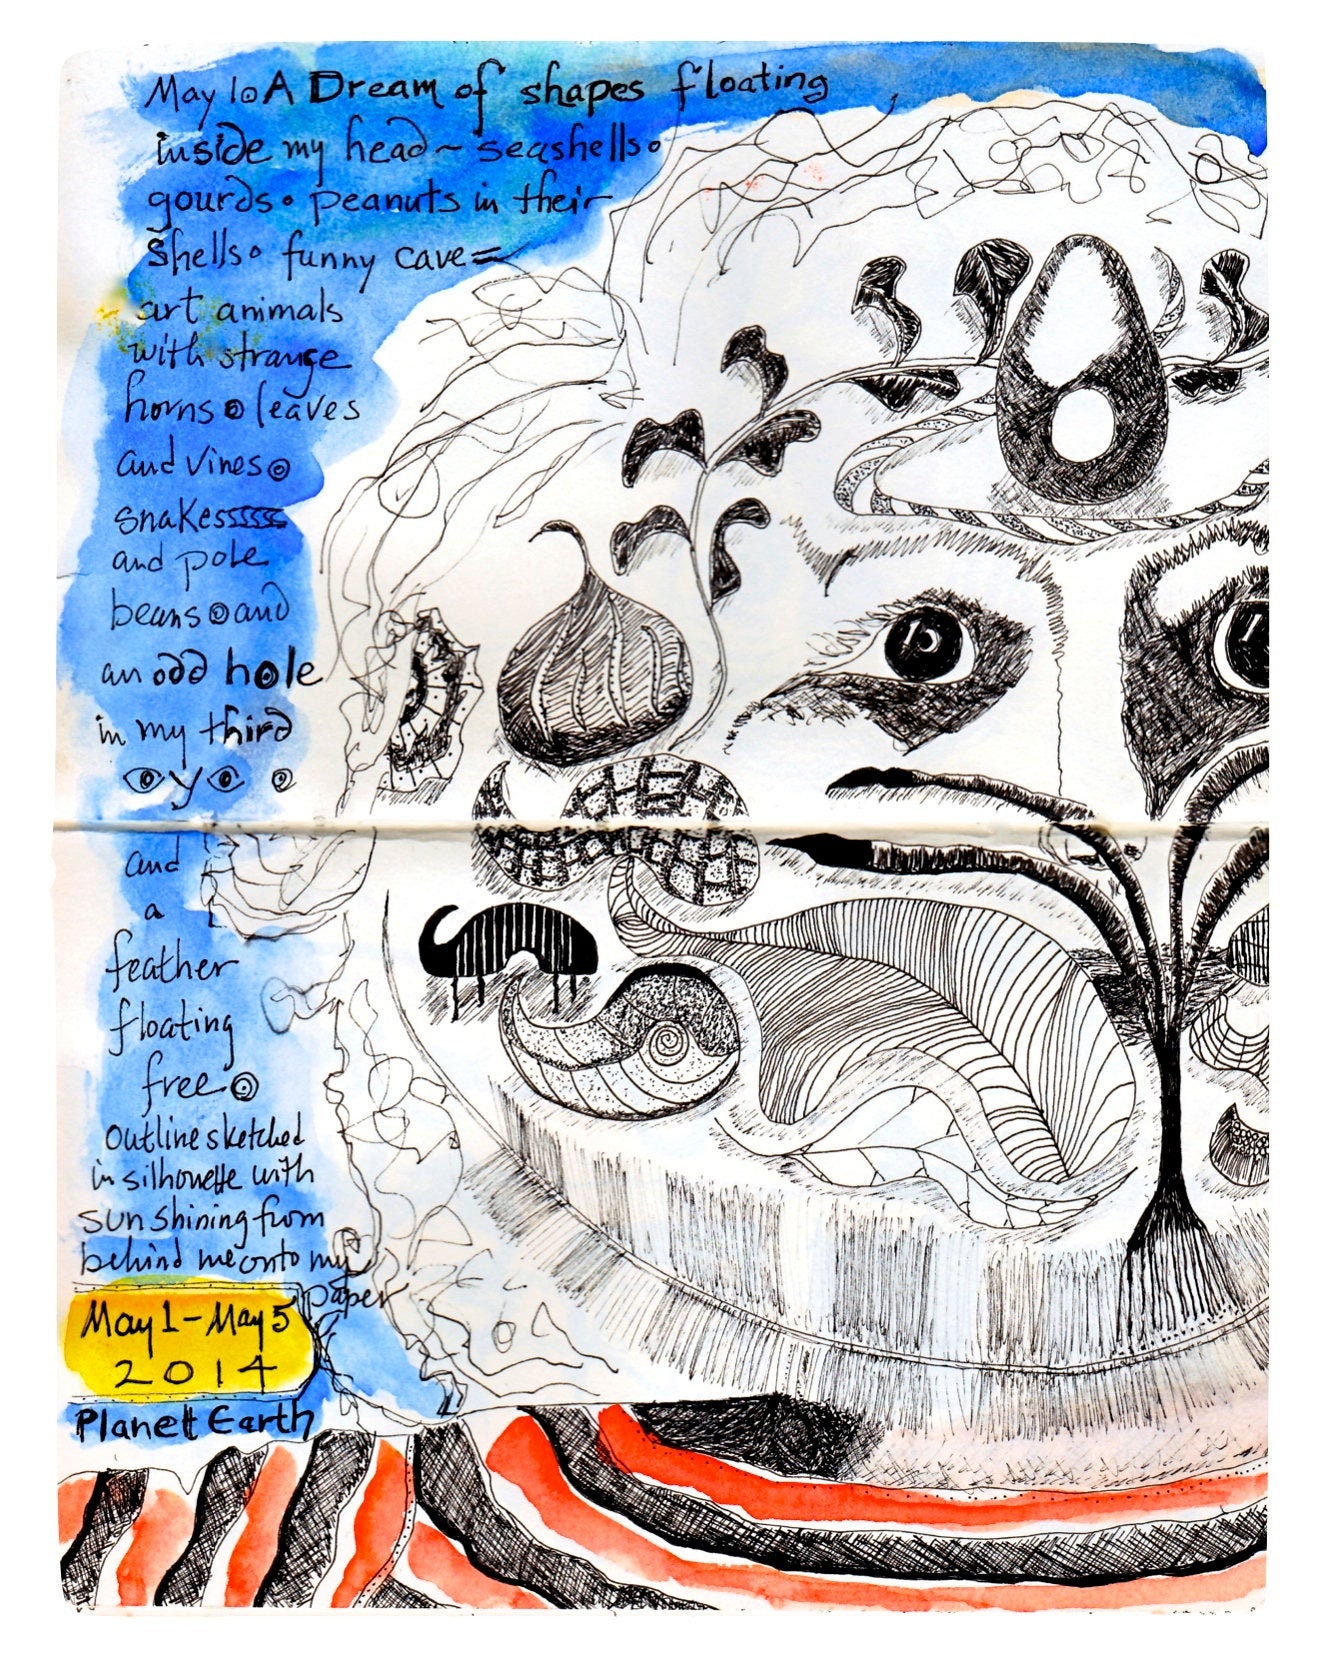 May 1⊙A Dream of shapes floating
inside my head~ seashells∘
gourds• peanuts in their
shells∘ funny cave=
art animals
with strange
horns⊙leaves
and vines⊙
snakesssss
and pole
beans⊙and
an odd hole
in my third
eye
and
a
feather
floating
free⊙
Outline sketched
in silhouette with
sun shining from
behind me onto my
paper
May 1 – May 5
2014
Planett Earth